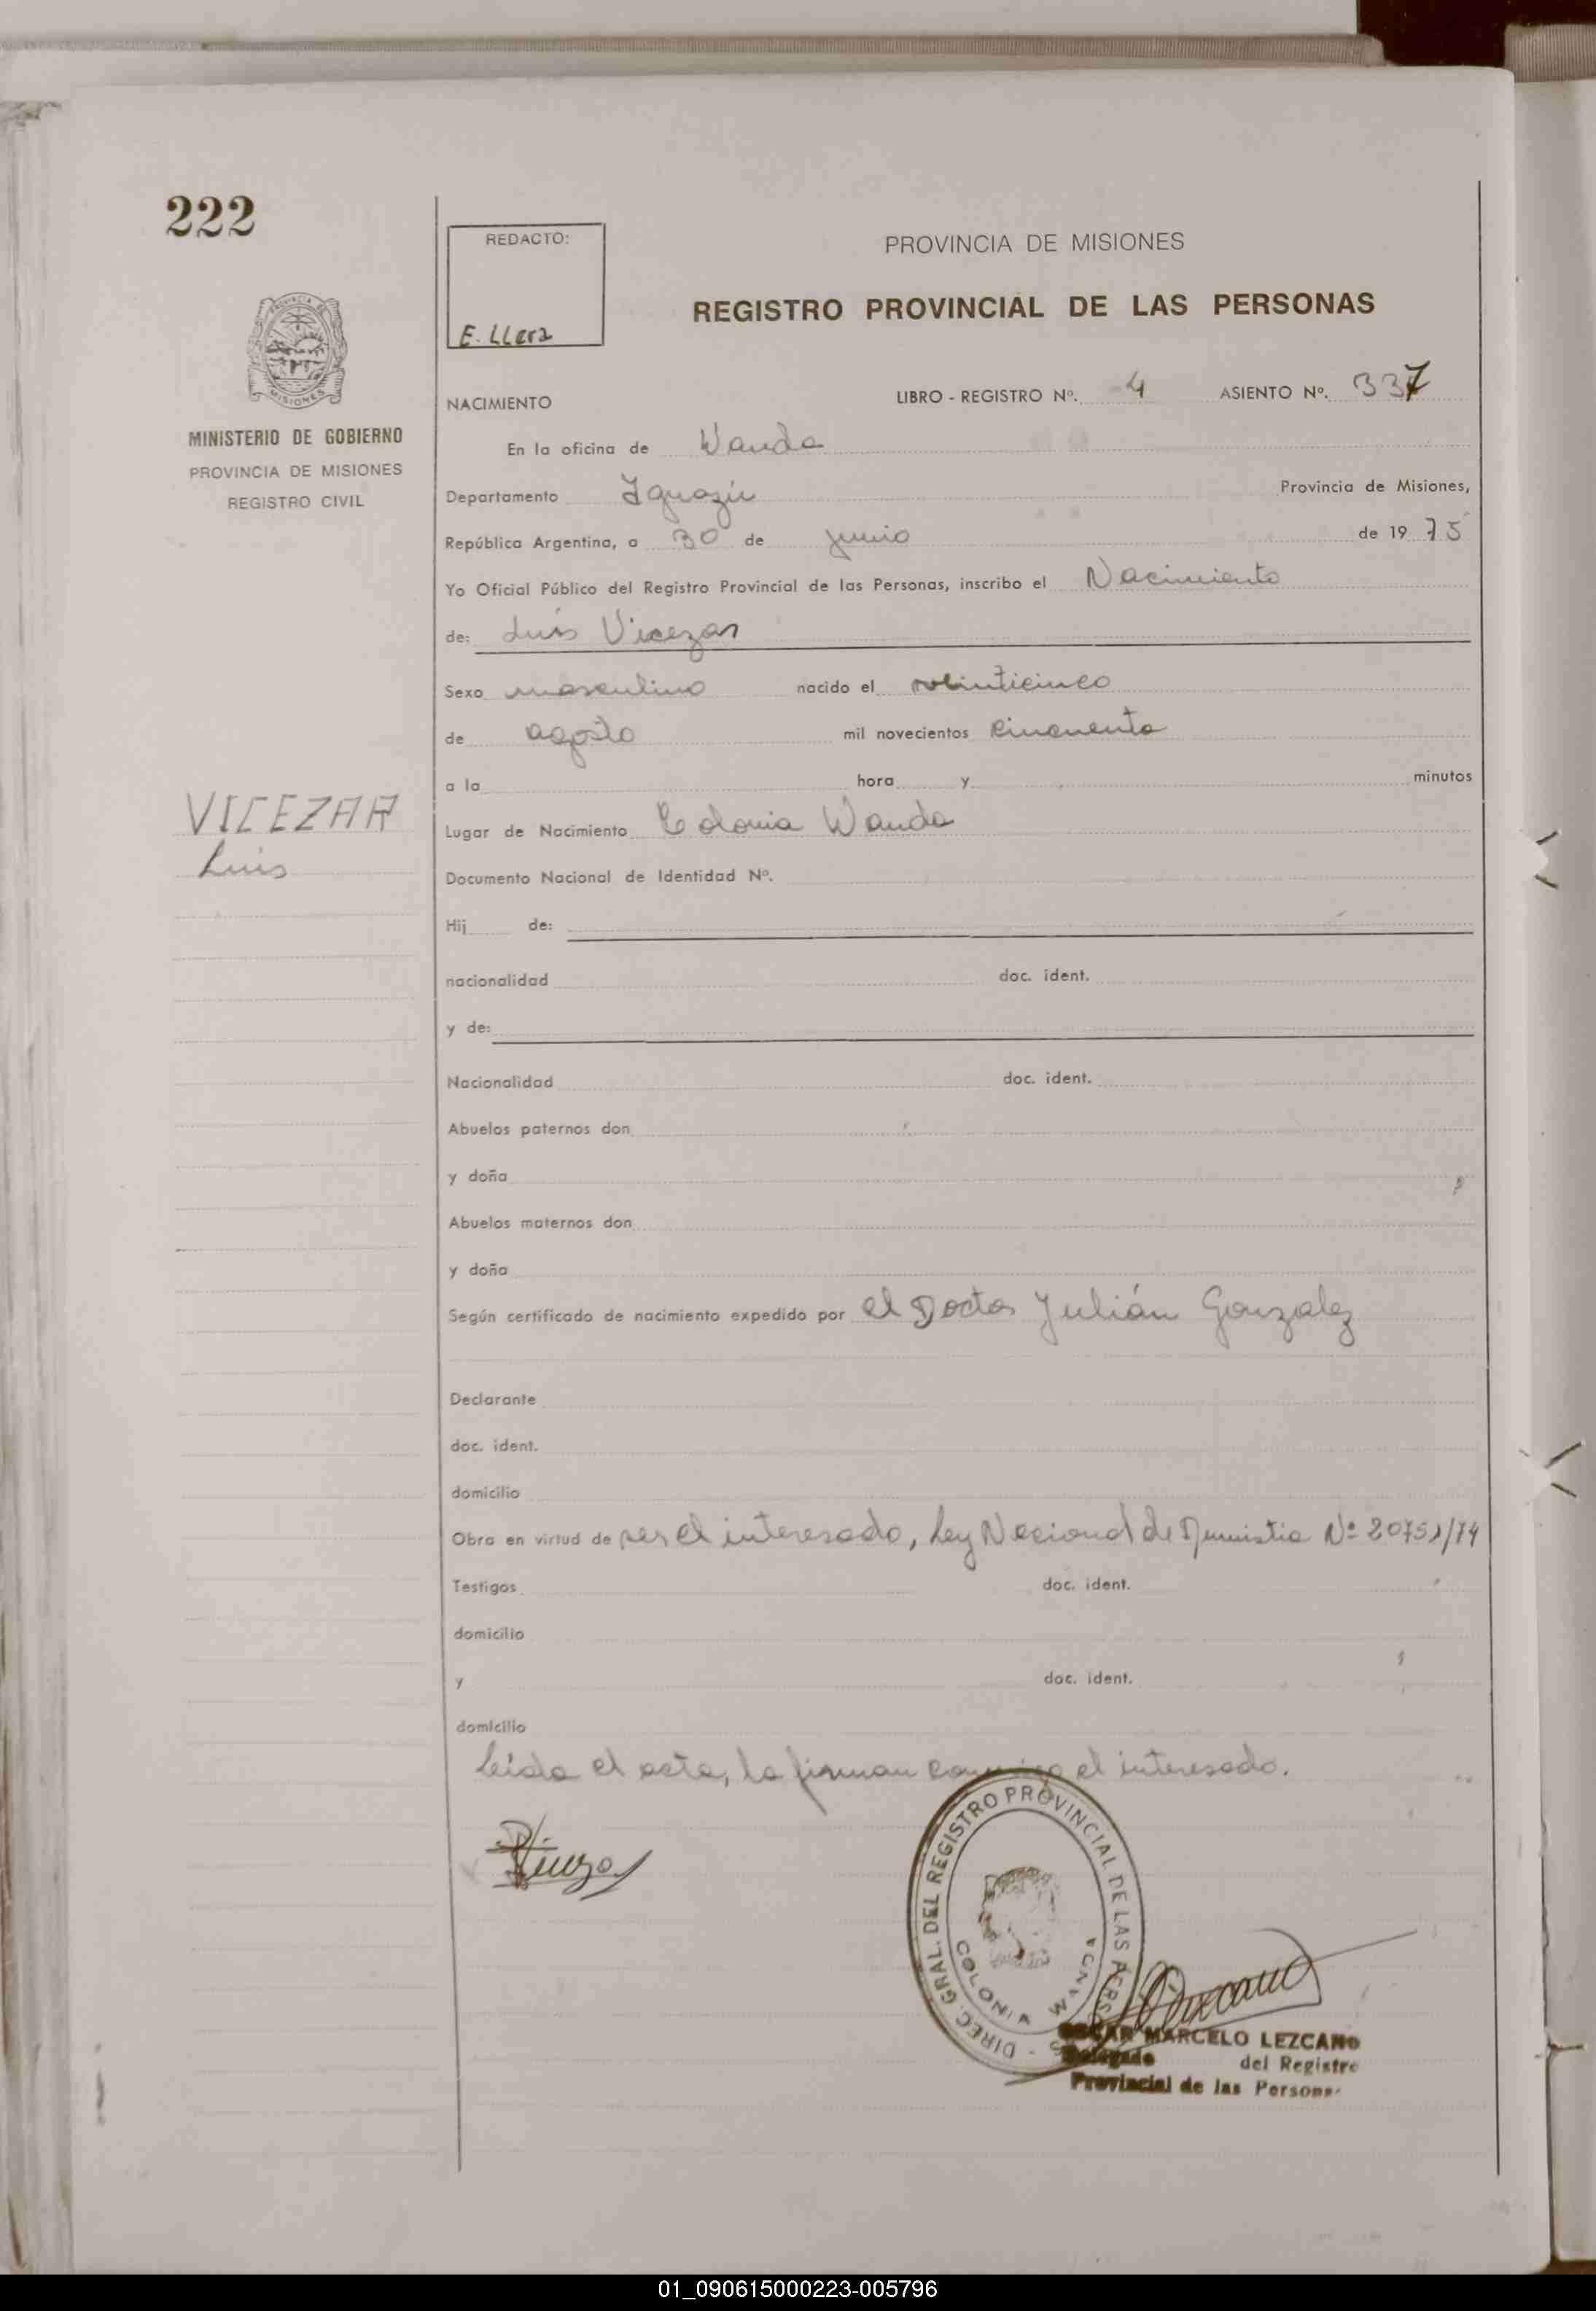 222
REDACTO:
E. LLera
PROVINCIA DE MISIONES
REGISTRO PROVINCIAL DE LAS PERSONAS
MINISTERIO DE GOBIERNO
PROVINCIA DE MISIONES
REGISTRO CIVIL
NACIMIENTO LIBRO - REGISTRO Nº. 4 ASIENTO Nº. 337
En la oficina de Wanda
Departamento Iguazú Provincia de Misiones,
República Argentina, a 30 de junio de 1975
Yo Oficial Público del Registro Provincial de las Personas, inscribo el Nacimiento
de: Luis Vicezar
Sexo masculino nacido el veinticinco
de agosto mil novecientos cincuenta
a la hora y minutos
VICEZAR
Luis
Lugar de Nacimiento Colonia Wanda
Documento Nacional de Identidad Nº.
Hij de:
nacionalidad doc. ident.
y de:
Nacionalidad doc. ident.
Abuelos paternos don
y doña
Abuelos maternos don
y doña
Según certificado de nacimiento expedido por el Doctor Julián Gonzalez
Declarante
doc. ident.
domicilio
Obra en virtud de ser el interesado, Ley Nacional de Amnistia Nº 20751/74
Testigos doc. ident.
domicilio
y doc. ident.
domicilio
Leida el acta, la firman conmigo el interesado.
DIREC. GRAL. DEL REGISTRO PROVINCIAL DE LAS PERS
COLONIA WANDA
OSCAR MARCELO LEZCANO
Delegado del Registro
Provincial de las Persona
01_090615000223-005796